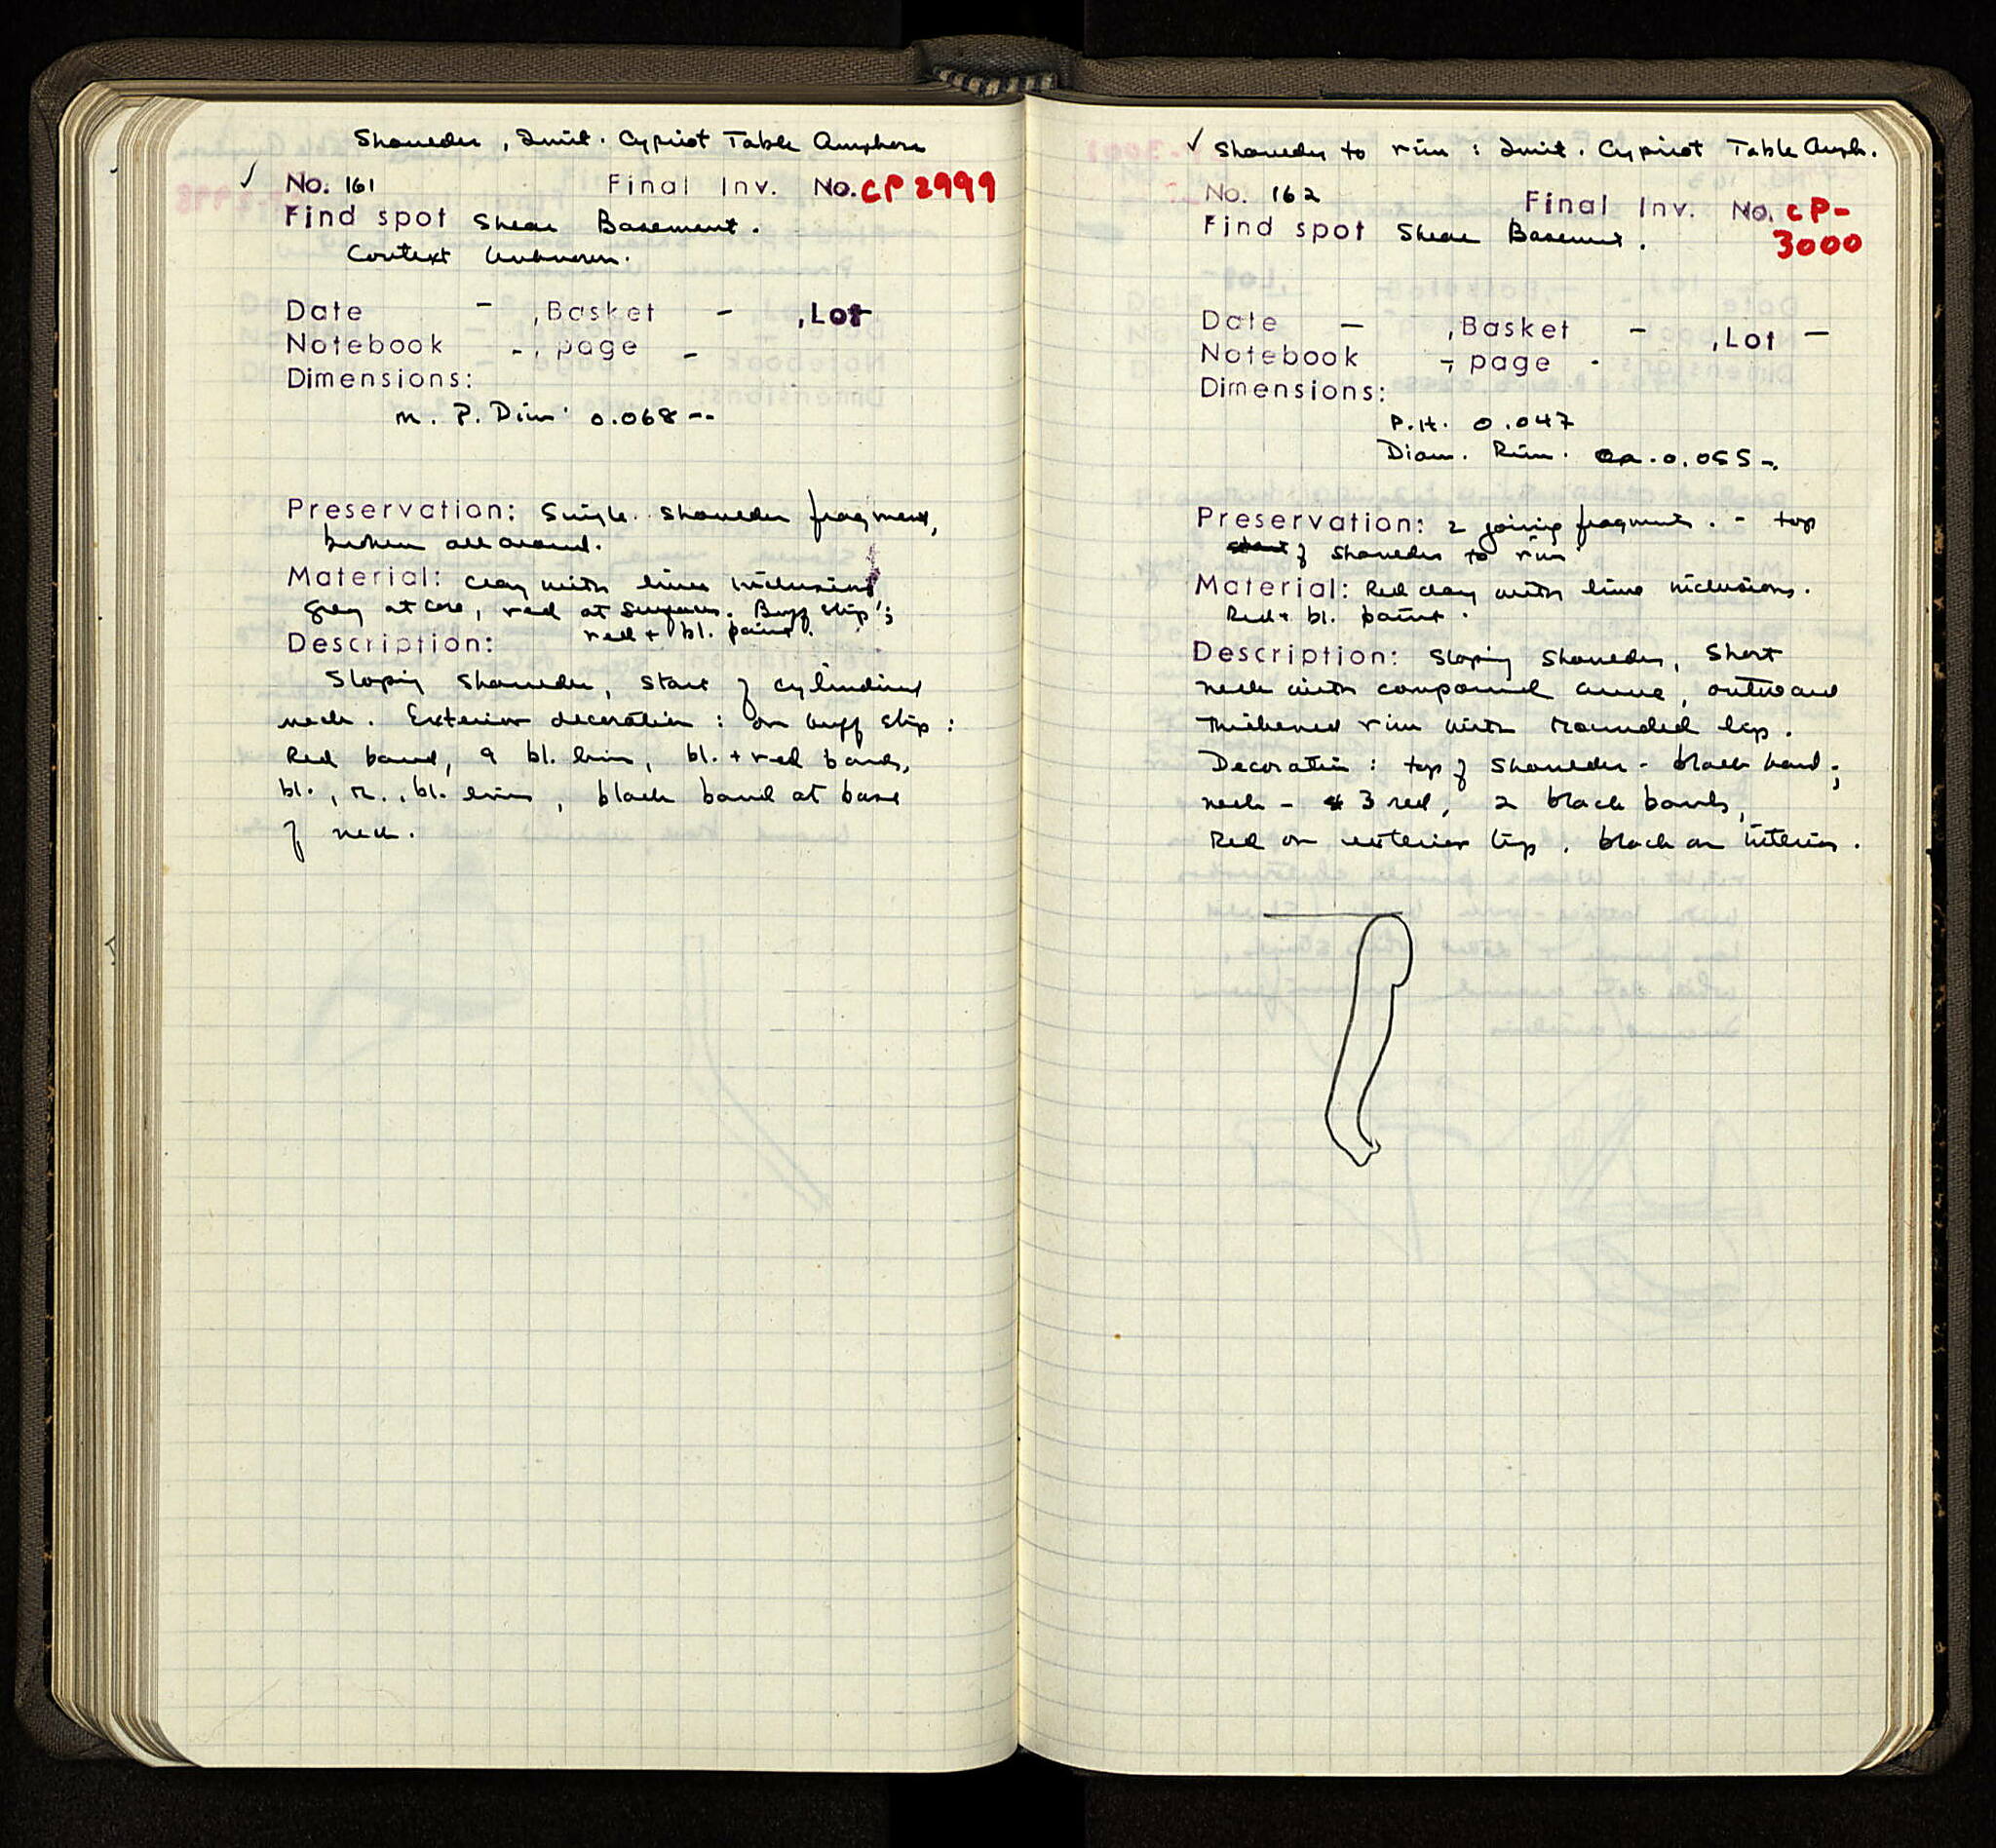 Shoulder, Imit. Cypriot Table Amphora
✓ No. 161 Final Inv. No. CP 2999
Find spot Shear Basement.
Context Unknown.
Date - , Basket - , Lot -
Notebook - , page -
Dimensions:
M. P. Dim 0.068 --
Preservation: Single shoulder fragment,
broken all around.
Material: Clay with lime inclusions
grey at core, red at surfaces. Buff slip;
red + bl. paint.
Description:
Sloping shoulder, start of cylindrical
neck. Exterior decoration: on buff slip:
Red band, 9 bl. lines, bl. + red bands,
bl., r., bl. lines, black band at base
of neck.
✓ Shoulder to rim: Imit. Cypriot Table Amph.
No. 162 Final Inv. No. CP-
3000
Find spot Shear Basement.
Date - , Basket - , Lot -
Notebook - , page -
Dimensions:
P.H. 0.047
Diam. Rim. ca. 0.055 -.
Preservation: 2 joining fragments. - top
of shoulder to rim
Material: Red clay with lime inclusions.
Red + bl. paint.
Description: Sloping shoulder, short
neck with compound curve, outward
thickened rim with rounded lip.
Decoration: top of shoulder - black band;
neck - 3 red, 2 black bands,
Red on exterior lip, black on interior.